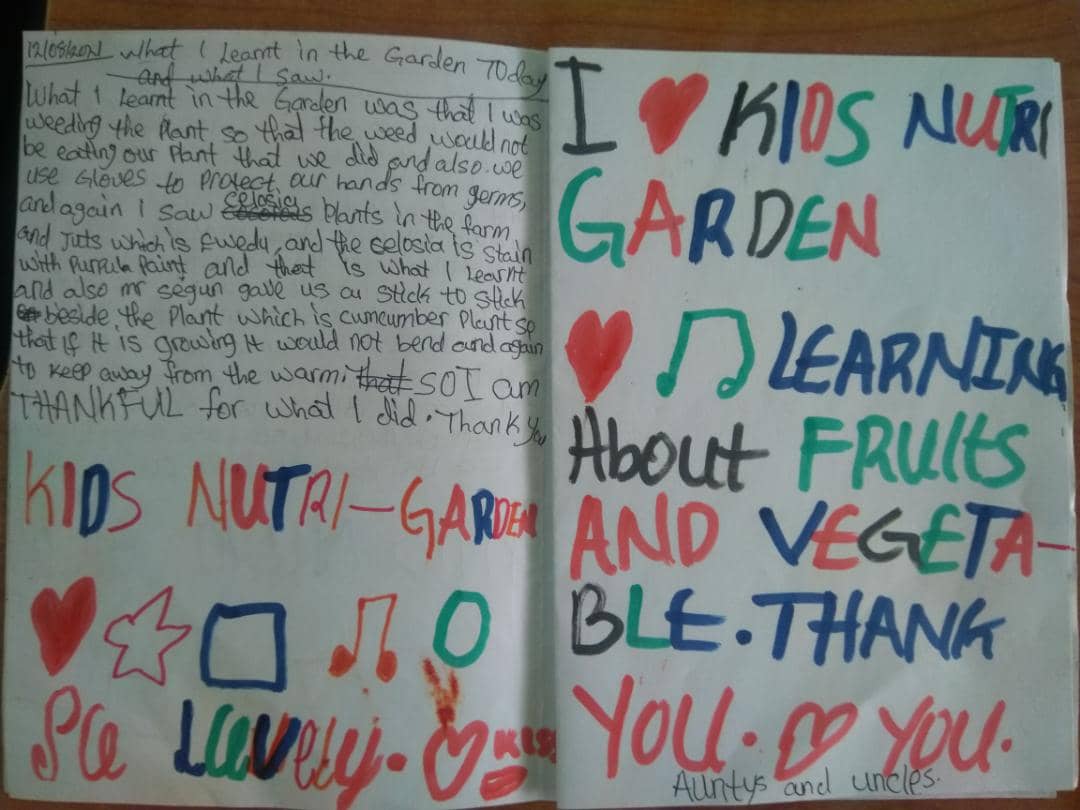 12/08/2021 What I Learnt in the Garden TOday
and what I saw.
What I Learnt in the Garden was that I was
weeding the Plant so that the weed would not
be eating our Plant that we did and also we
use Gloves to Protect our hands from germs,
and again I saw celosia plants in the farm
and Juts which is Ewedu, and the celosia is stain
with purpule Paint and that is what I Learnt
and also mr segun gave us a stick to stick
beside the Plant which is cumcumber Plant so
that if it is growing it would not bend and again
to keep away from the warm. that SO I am
THANKFUL for what I did. Thank you
KIDS NUTRI-GARDEN
Lovely. KISS
I KIDS NUTRI
GARDEN
LEARNING
About FRUIts
AND VEGETA-
BLE. THANK
YOU. YOU.
Auntys and uncles.